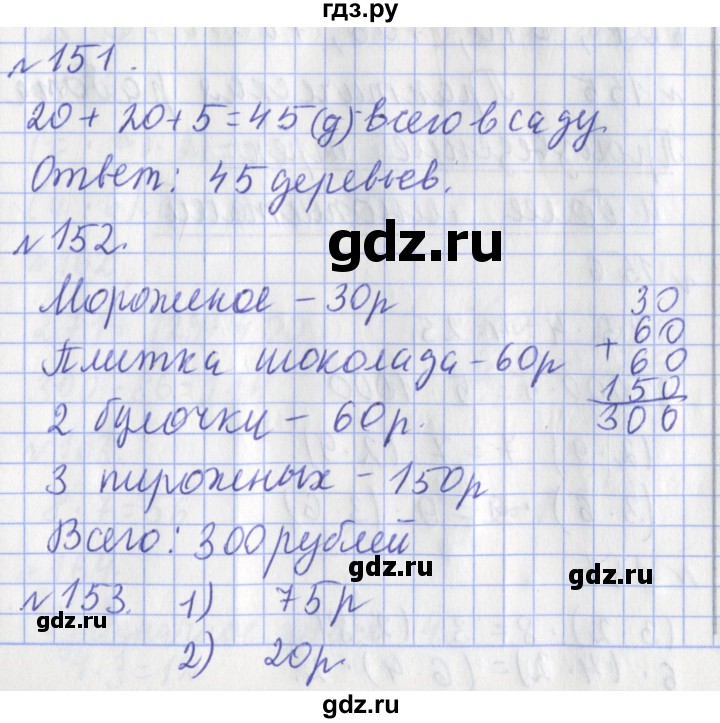 гдз.ру
№151.
20+20+5=45(д)-всего в саду.
Ответ: 45 деревьев.
№152.
gdz.ru
Мороженое – 30р
Плитка шоколада – 60р
2 булочки – 60р.
3 пирожных – 150р
Всего: 300 рублей
30
+ 60
60
150
300
gdz.ru
gdz.ru
№153. 1) 75р
gdz.ru
gdz.ru
2) 20р.
gdz.ru